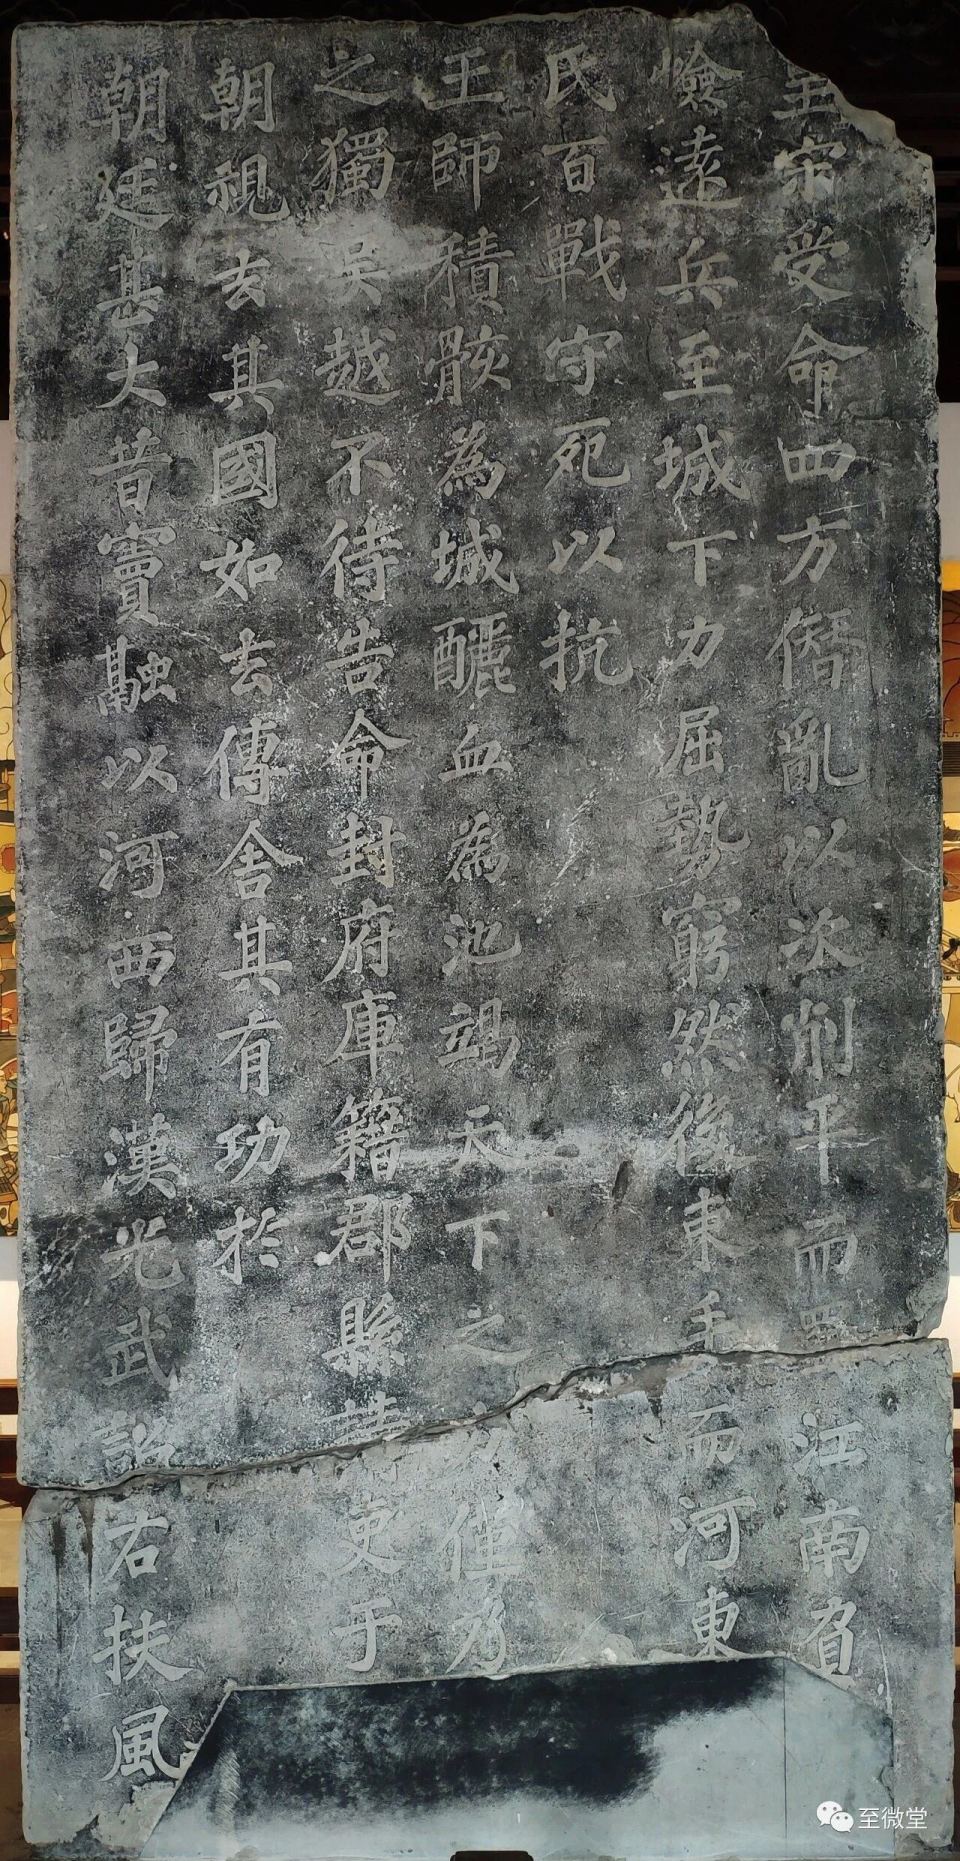 宋受命四方僭亂以次削平而蜀江南負
嶮遠兵至城下力屈勢窮然後束手而河東
氏百戰守死以抗
王師積骸為城釃血為池竭天下之力僅乃
之獨吳越不待告命封府庫籍郡縣請吏于
朝視去其國如去傳舍其有功於
朝廷甚大昔竇融以河西歸漢光武詔右扶風
至微堂